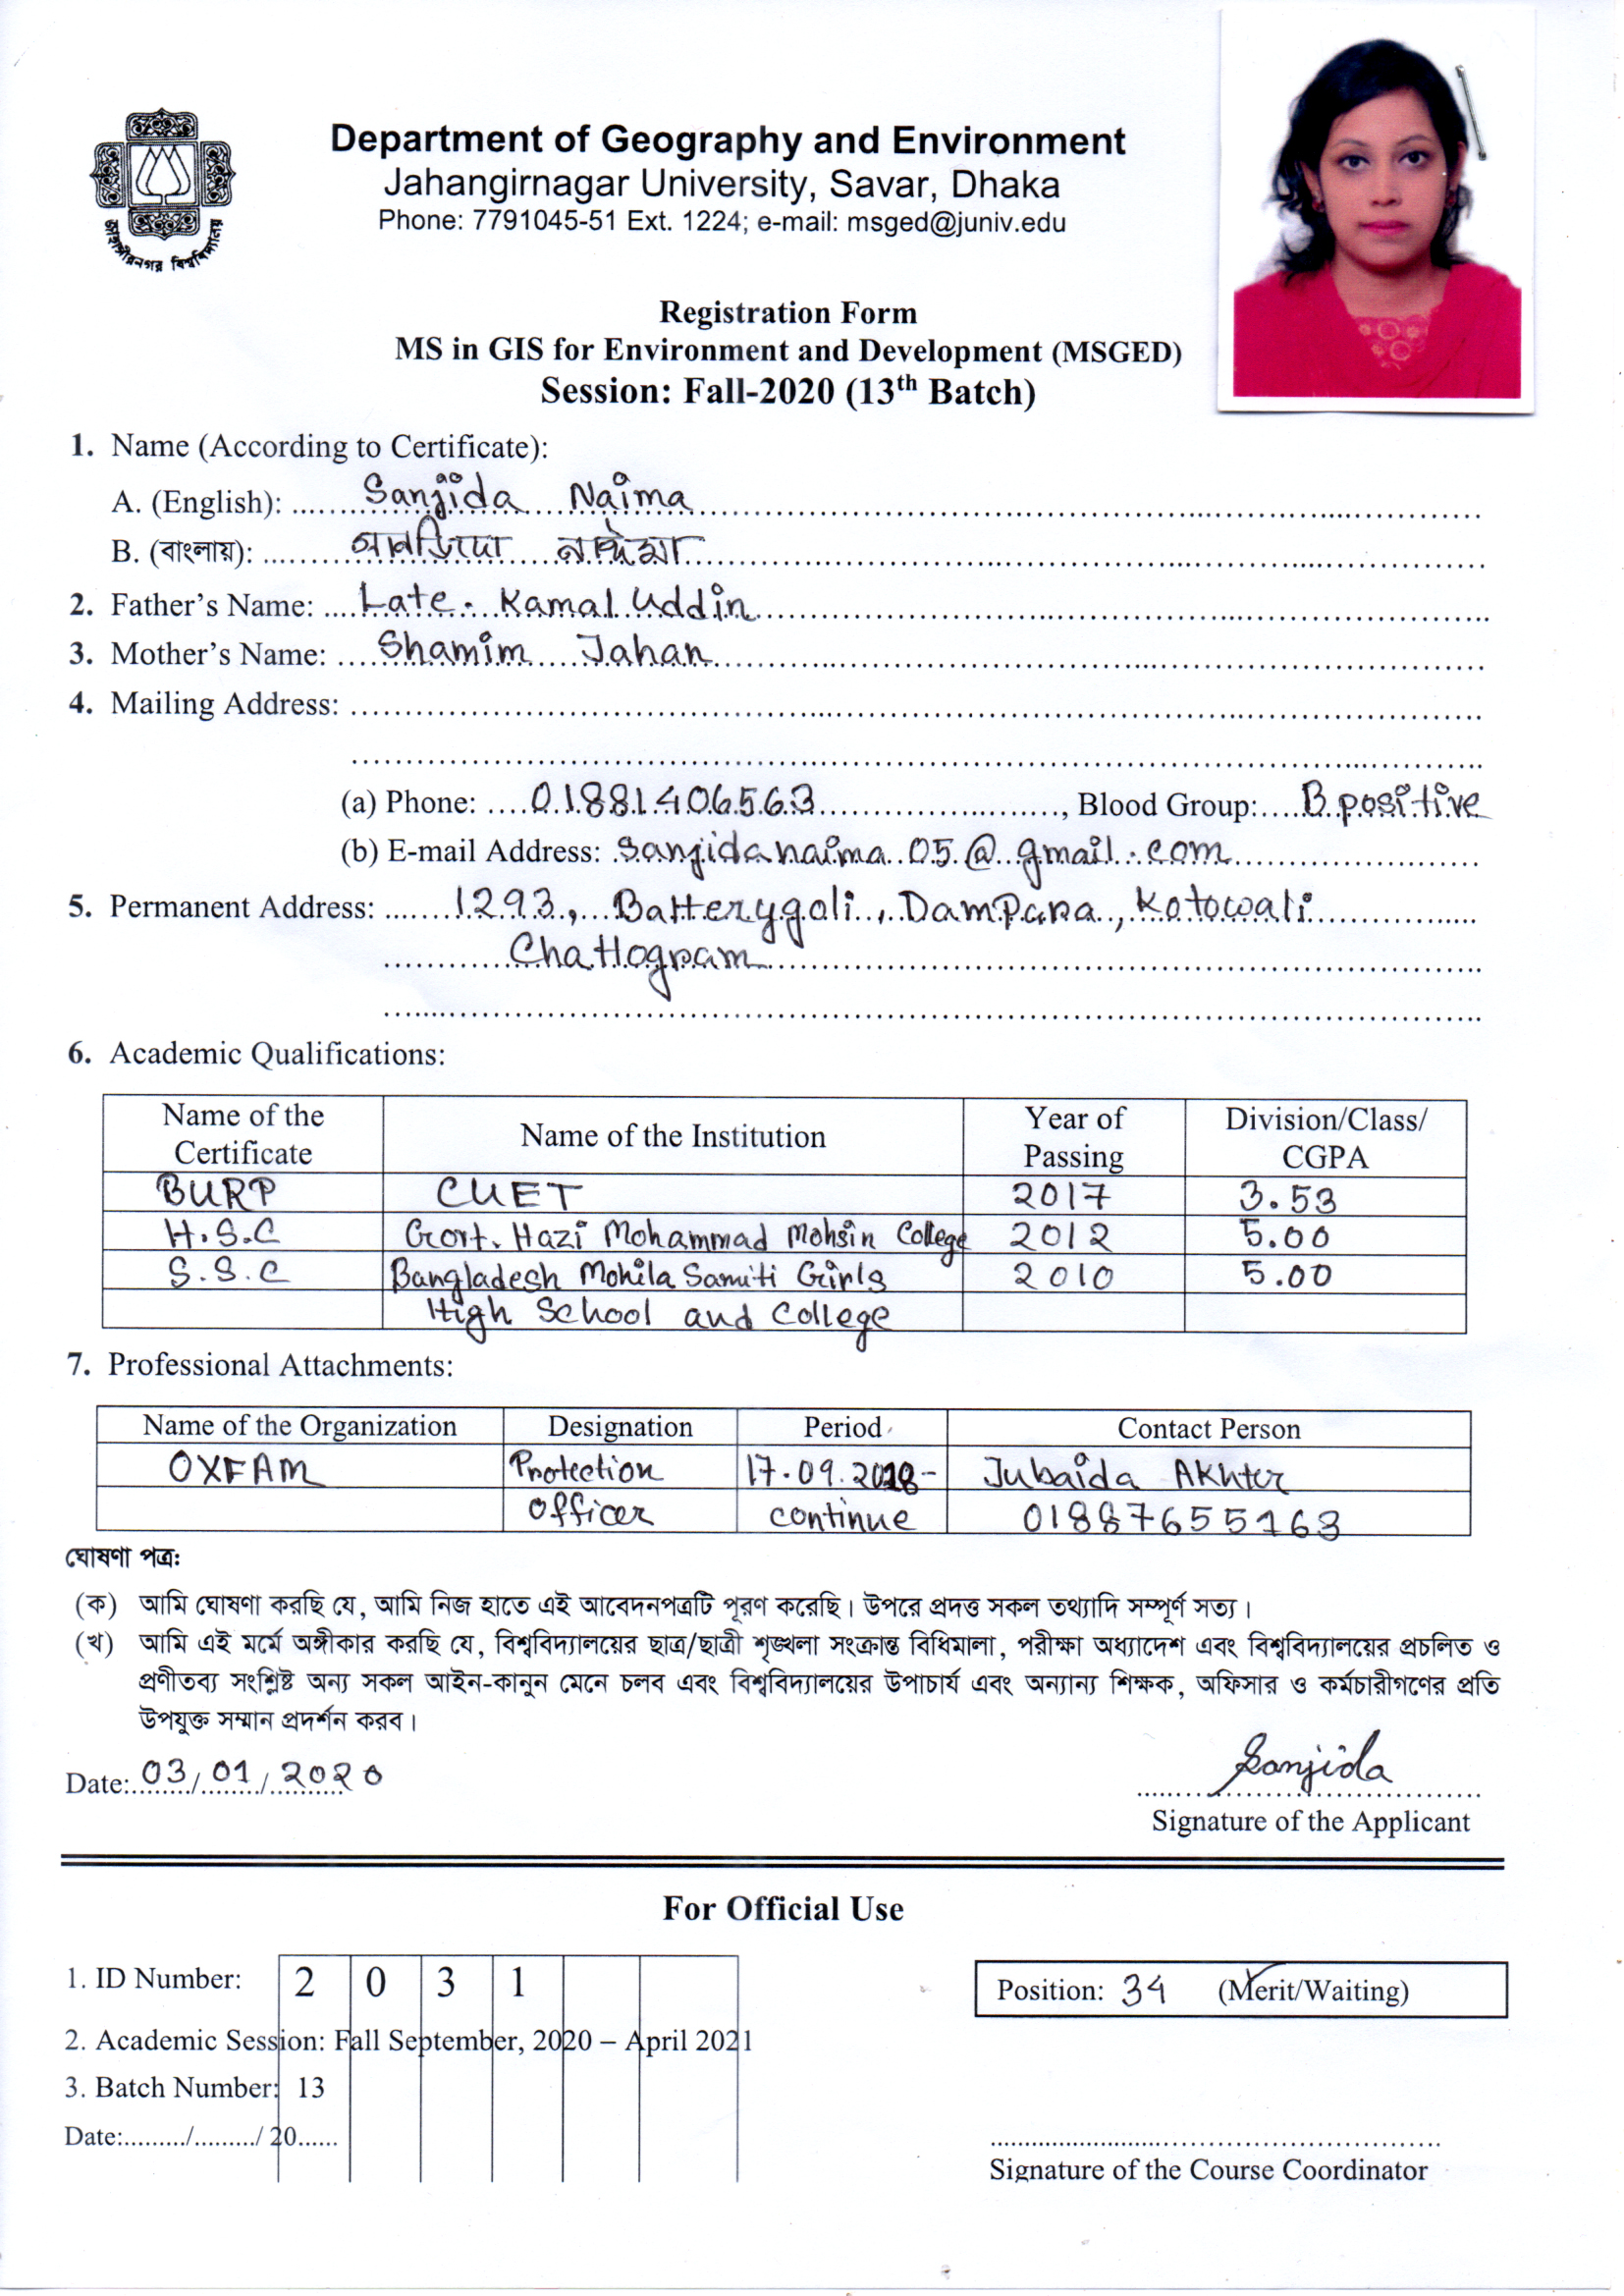 জাহাঙ্গীরনগর বিশ্ববিদ্যালয়
Department of Geography and Environment
Jahangirnagar University, Savar, Dhaka
Phone: 7791045-51 Ext. 1224; e-mail: msged@juniv.edu
Registration Form
MS in GIS for Environment and Development (MSGED)
Session: Fall-2020 (13th Batch)
1. Name (According to Certificate):
A. (English): Sanjida Naima
B. (বাংলায়): সানজিদা নাঈমা
2. Father's Name: Late. Kamal Uddin
3. Mother's Name: Shamim Jahan
4. Mailing Address:
(a) Phone: 01881406563, Blood Group: B positive
(b) E-mail Address: sanjidanaima05@gmail.com
5. Permanent Address: 1293, Batterygoli, Dampara, Kotowali
Chattogram
6. Academic Qualifications:
Name of the Certificate Name of the Institution Year of Passing Division/Class/CGPA
BURP CUET 2017 3.53
H.S.C Govt. Hazi Mohammad Mohsin College 2012 5.00
S.S.C Bangladesh Mohila Samiti Girls 2010 5.00
High School and College
7. Professional Attachments:
Name of the Organization Designation Period Contact Person
OXFAM Protection 17.09.2018- Jubaida Akhter
Officer continue 01887655163
ঘোষণা পত্র:
(ক) আমি ঘোষণা করছি যে, আমি নিজ হাতে এই আবেদনপত্রটি পূরণ করেছি। উপরে প্রদত্ত সকল তথ্যাদি সম্পূর্ণ সত্য।
(খ) আমি এই মর্মে অঙ্গীকার করছি যে, বিশ্ববিদ্যালয়ের ছাত্র/ছাত্রী শৃঙ্খলা সংক্রান্ত বিধিমালা, পরীক্ষা অধ্যাদেশ এবং বিশ্ববিদ্যালয়ের প্রচলিত ও
প্রণীতব্য সংশ্লিষ্ট অন্য সকল আইন-কানুন মেনে চলব এবং বিশ্ববিদ্যালয়ের উপাচার্য এবং অন্যান্য শিক্ষক, অফিসার ও কর্মচারীগণের প্রতি
উপযুক্ত সম্মান প্রদর্শন করব।
Date: 03/01/2020 Sanjida
Signature of the Applicant
For Official Use
1. ID Number: 2 0 3 1 Position: 34 (Merit/Waiting)
2. Academic Session: Fall September, 2020 – April 2021
3. Batch Number: 13
Date:........./........./ 20......
Signature of the Course Coordinator